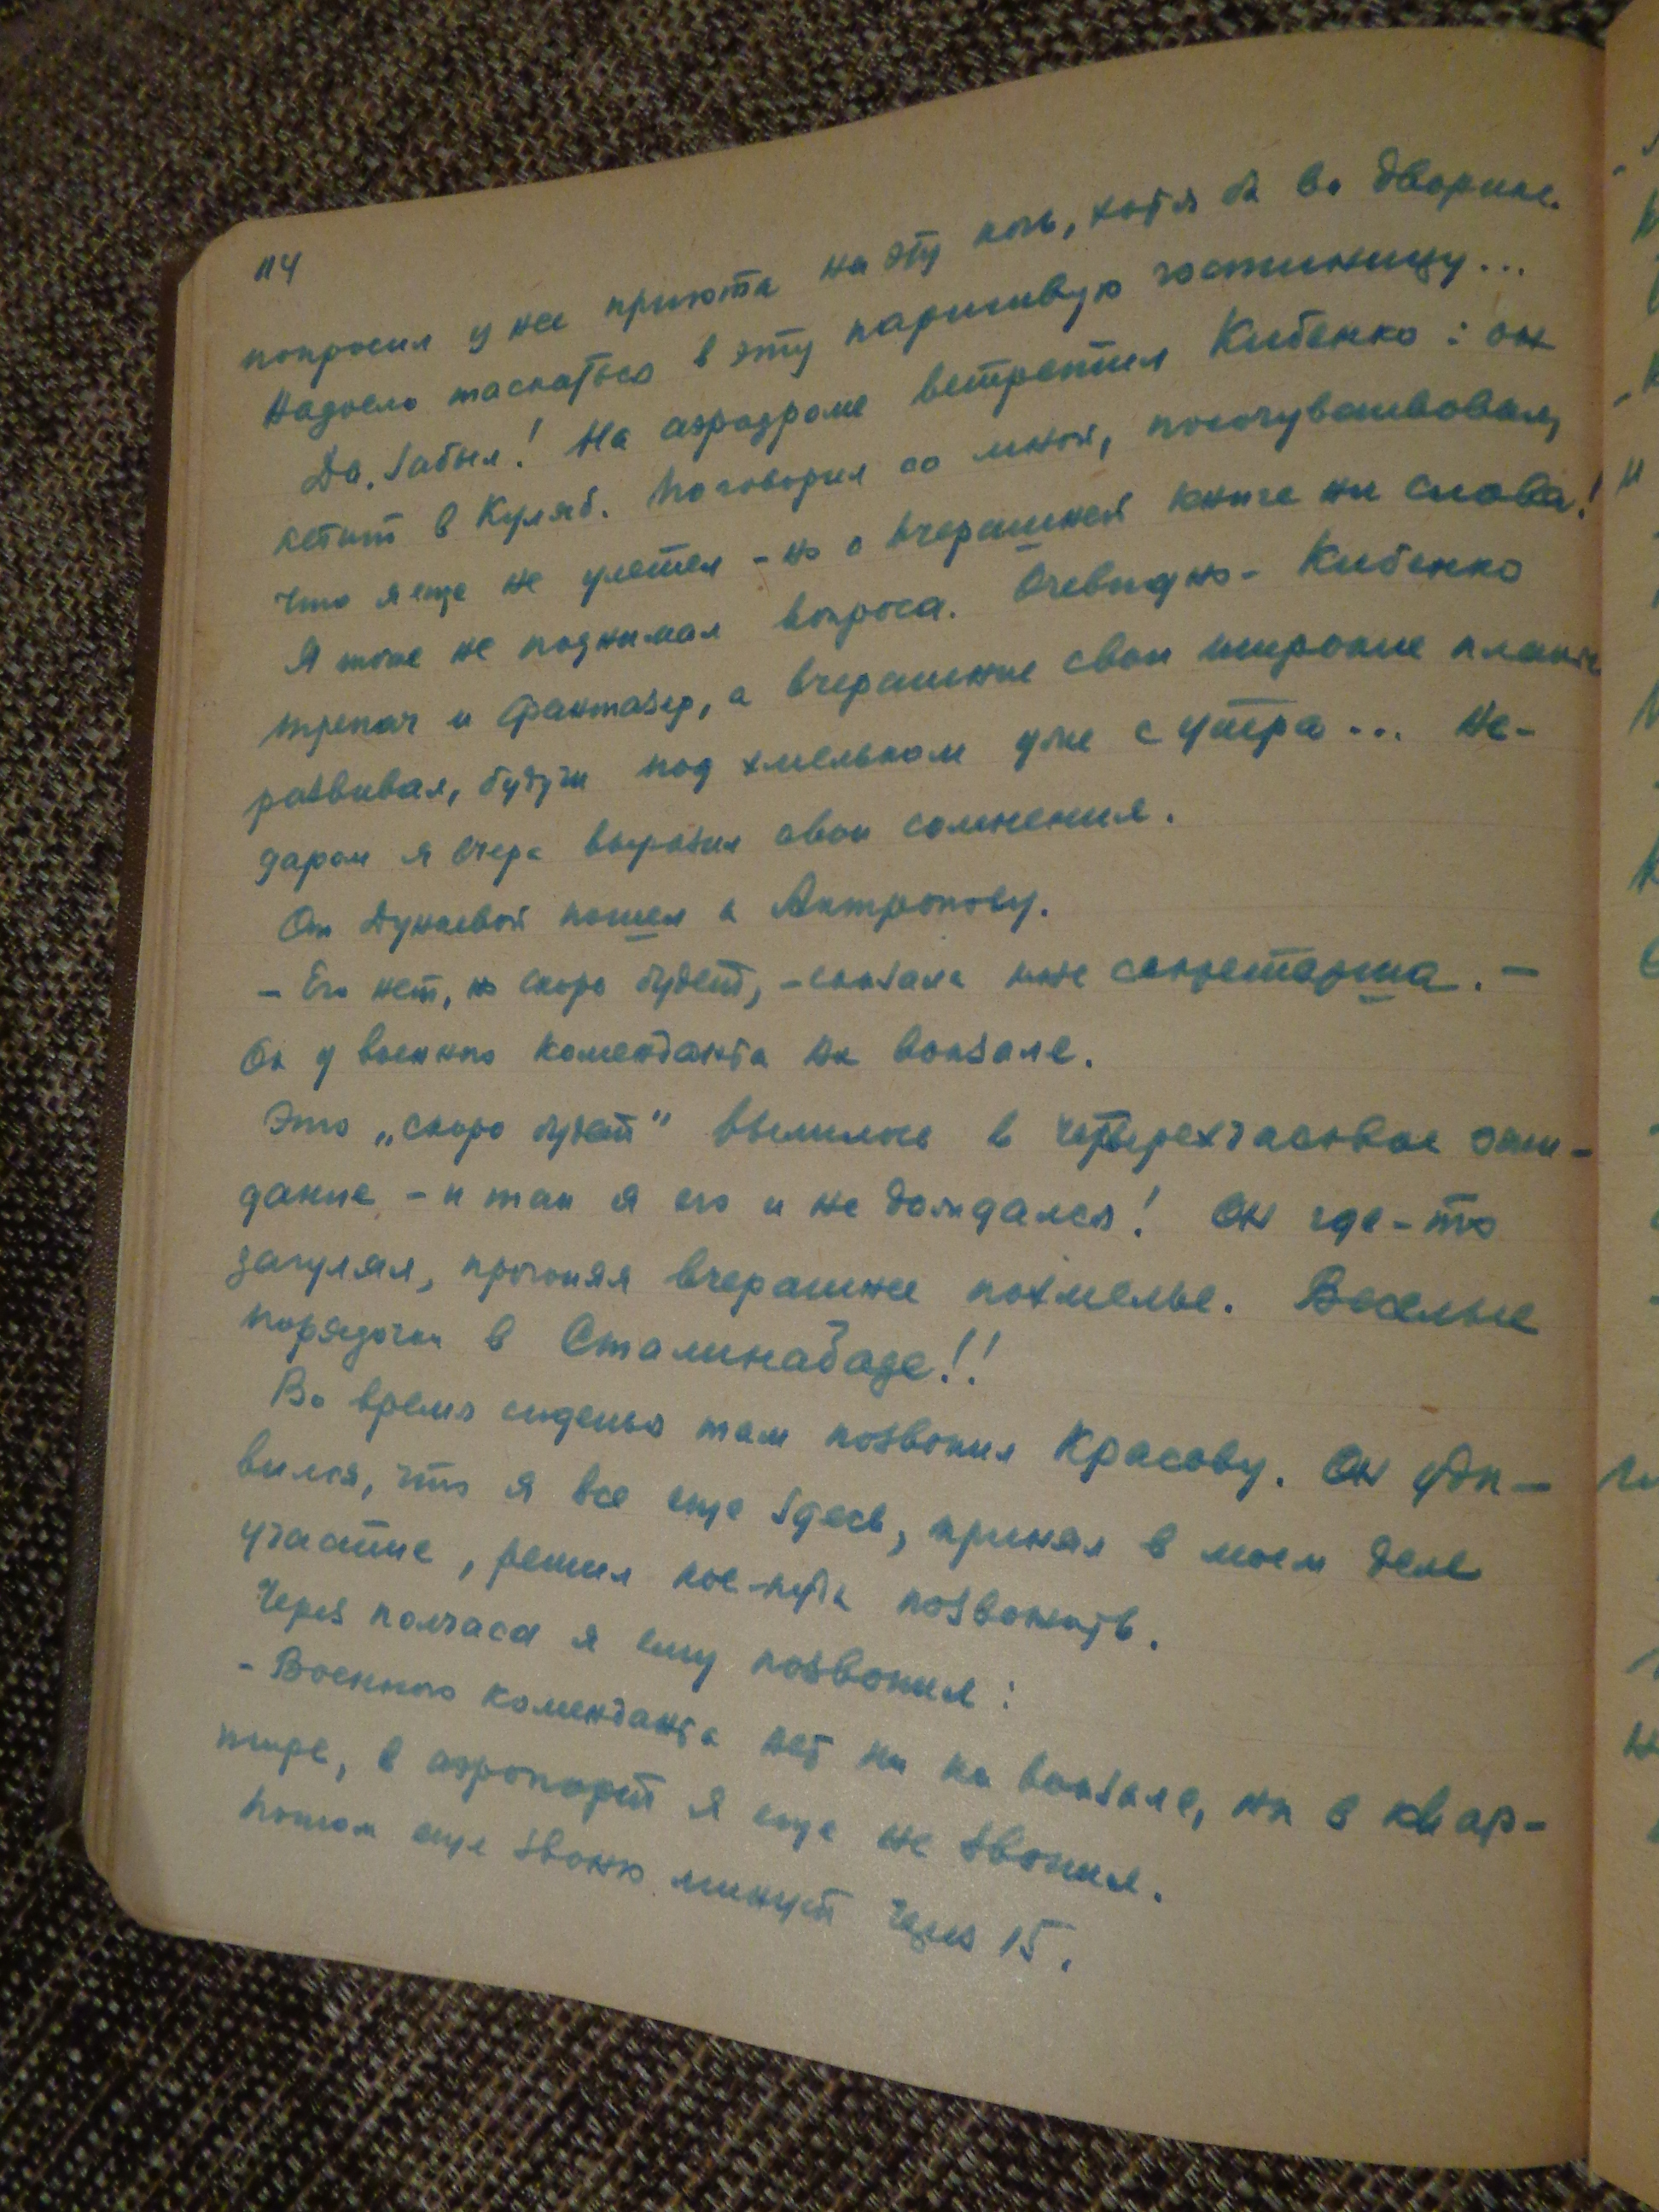 114
попросил у нее приюта на эту ночь, хотя б во дворике.
Надоело таскаться в эту паршивую гостиницу...
Да, забыл! На аэродроме встретил Кибенко: он
летит в Куляб. Поговорил со мной, посочувствовал,
что я еще не улетел - но о вчерашней книге ни слова!
Я тоже не поднимал вопроса. Очевидно - Кибенко
трепач и фантазер, а вчерашние свои широкие планы
развивал, будучи под хмельком уже с утра... Не-
даром я вчера выразил свои сомнения.
От Дунаевой пошел к Антропову.
- Его нет, но скоро будет, - сказала мне секретарша. -
Он у военного коменданта на вокзале.
Это „скоро будет" вылилось в четырехчасовое ожи-
дание - и так я его и не дождался! Он где-то
загулял, прогоняя вчерашнее похмелье. Веселые
порядочки в Сталинабаде!!
Во время сиденья там позвонил Красову. Он уди-
вился, что я все еще здесь, принял в моем деле
участие, решил кое-куда позвонить.
Через полчаса я ему позвонил:
- Военного коменданта нет ни на вокзале, ни в квар-
тире, в аэропорт я еще не звонил.
Потом еще звоню минут через 15.